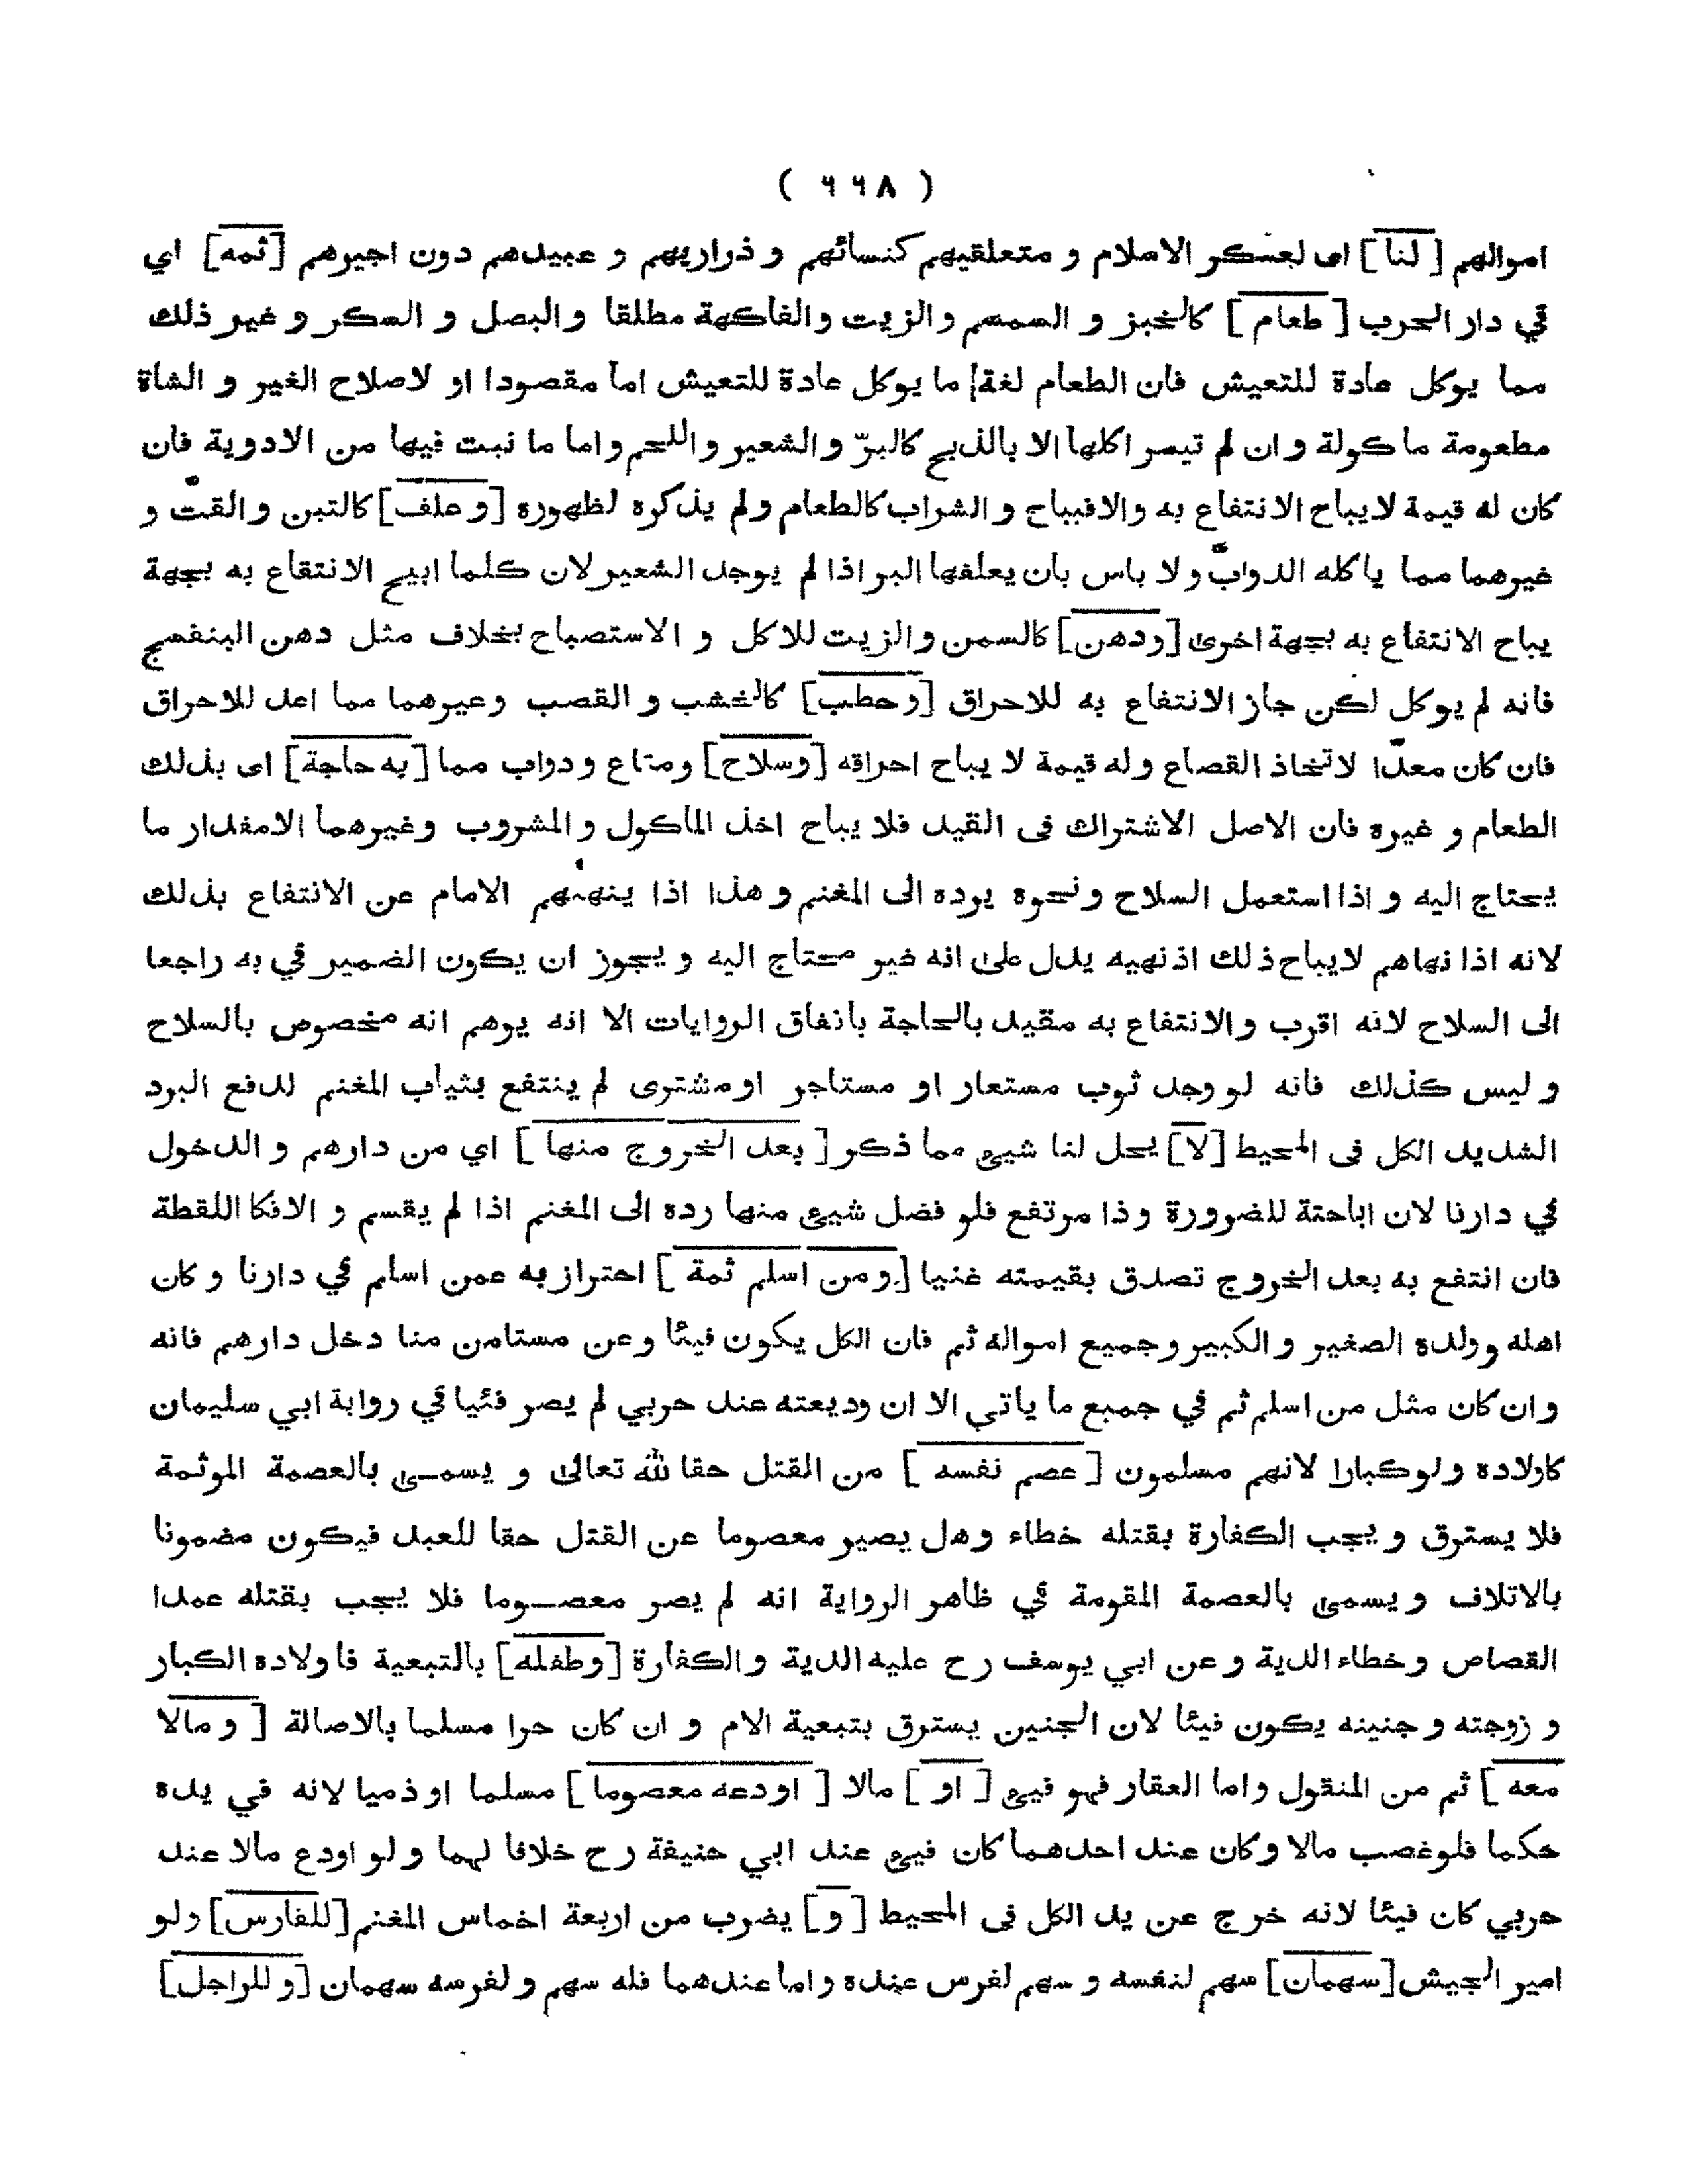 ( ٦٦٨ )
اموالهم [ لنا ] اى لعسكر الاسلام و متعلقيهم كنسائهم و ذراريهم و عبيدهم دون اجيرهم [ثمه] اي
في دار الحرب [ طعام ] كالخبز و السمسم والزيت والفاكهة مطلقا والبصل و السكر و غير ذلك
مما يوكل عادة للتعيش فان الطعام لغة ما يوكل عادة للتعيش اما مقصودا او لاصلاح الغير و الشاة
مطعومة ماكولة و ان لم تيسر اكلها الا بالذبح كالبرّ والشعير واللحم واما ما نبت فيها من الادوية فان
كان له قيمة لايباح الانتفاع به والافيباح و الشراب كالطعام ولم يذكره لظهوره [وعلف] كالتبن والقتّ و
غيرهما مما ياكله الدوابّ ولا باس بان يعلفها البر اذا لم يوجد الشعير لان كلما ابيح الانتفاع به بجهة
يباح الانتفاع به بجهة اخرى [ودهن] كالسمن والزيت للاكل و الاستصباح بخلاف مثل دهن البنفسج
فانه لم يوكل لكن جاز الانتفاع به للاحراق [وحطب] كالخشب و القصب وغيرهما مما اعد للاحراق
فان كان معدّا لاتخاذ القصاع وله قيمة لا يباح احراقه [وسلاح] ومتاع ودواب مما [به حاجة] اى بذلك
الطعام و غيره فان الاصل الاشتراك فى القيد فلا يباح اخذ الماكول و المشروب وغيرهما الامقدار ما
يحتاج اليه و اذا استعمل السلاح ونحوه يرده الى المغنم وهذا اذا ينههم الامام عن الانتفاع بذلك
لانه اذا نهاهم لايباح ذلك اذنهيه يدل على انه غير محتاج اليه و يجوز ان يكون الضمير في به راجعا
الى السلاح لانه اقرب والانتفاع به مقيد بالحاجة باتفاق الروايات الا انه يوهم انه مخصوص بالسلاح
و ليس كذلك فانه لو وجد ثوب مستعار او مستاجر او مشترى لم ينتفع بثياب المغنم لدفع البرد
الشديد الكل فى المحيط [لا] يحل لنا شيئ مما ذكر [ بعد الخروج منها ] اي من دارهم و الدخول
في دارنا لان اباحتة للضرورة وذا مرتفع فلو فضل شيئ منها رده الى المغنم اذا لم يقسم و الافكا اللقطة
فان انتفع به بعد الخروج تصدق بقيمته غنيا [ومن اسلم ثمة ] احتراز به عمن اسلم في دارنا و كان
اهله وولده الصغير والكبير وجميع امواله ثم فان الكل يكون فيئا وعن مستامن منا دخل دارهم فانه
وان كان مثل من اسلم ثم في جميع ما ياتي الا ان وديعته عند حربي لم يصر فئيا في رواية ابي سليمان
كاولاده ولو كبارا لانهم مسلمون [ عصم نفسه ] من القتل حقا لله تعالى و يسمى بالعصمة الموثمة
فلا يسترق و يجب الكفارة بقتله خطاء وهل يصير معصوما عن القتل حقا للعبد فيكون مضمونا
بالاتلاف و يسمى بالعصمة المقومة في ظاهر الرواية انه لم يصر معصوما فلا يجب بقتله عمدا
القصاص وخطاء الدية و عن ابي يوسف رح عليه الدية والكفارة [وطفله] بالتبعية فاولاده الكبار
و زوجته وجنينه يكون فيئا لان الجنين يسترق بتبعية الام و ان كان حرا مسلما بالاصالة [ ومالا
معه ] ثم من المنقول واما العقار فهو فيئ [ او ] مالا [ اودعه معصوما ] مسلما او ذميا لانه في يده
حكما فلوغصب مالا وكان عند احدهما كان فيئ عند ابي حنيفة رح خلافا لهما ولو اودع مالا عند
حربي كان فيئا لانه خرج عن يد الكل فى المحيط [و] يضرب من اربعة اخماس المغنم [للفارس] ولو
امير الجيش [سهمان] سهم لنفسه و سهم لفرس عنده واما عندهما فله سهم ولفرسه سهمان [وللراجل]